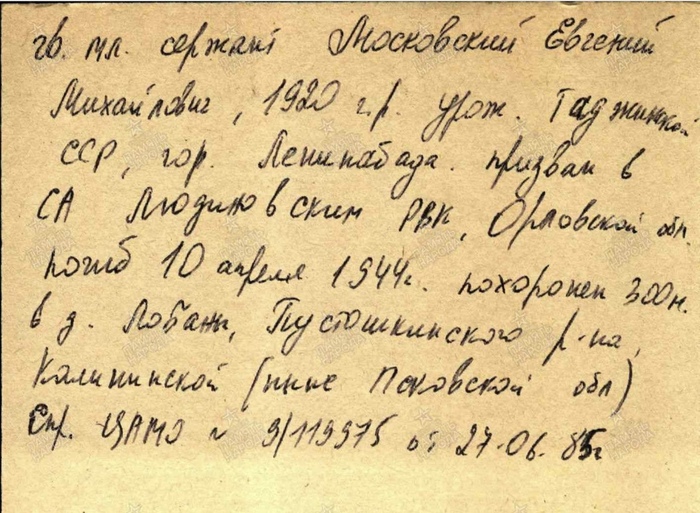 гв. мл. сержант Московский Евгений
Михайлович, 1920 г.р. урож. Таджикской
ССР, гор. Ленинабада. призван в
СА Людиновским РВК, Орловской обл.
погиб 10 апреля 1944г. похоронен 300м.
в д. Лобаны, Пустошкинского р-на,
Калининской (ныне Псковской обл)
Спр. ЦАМО № 9/119975 от 27.06.85г